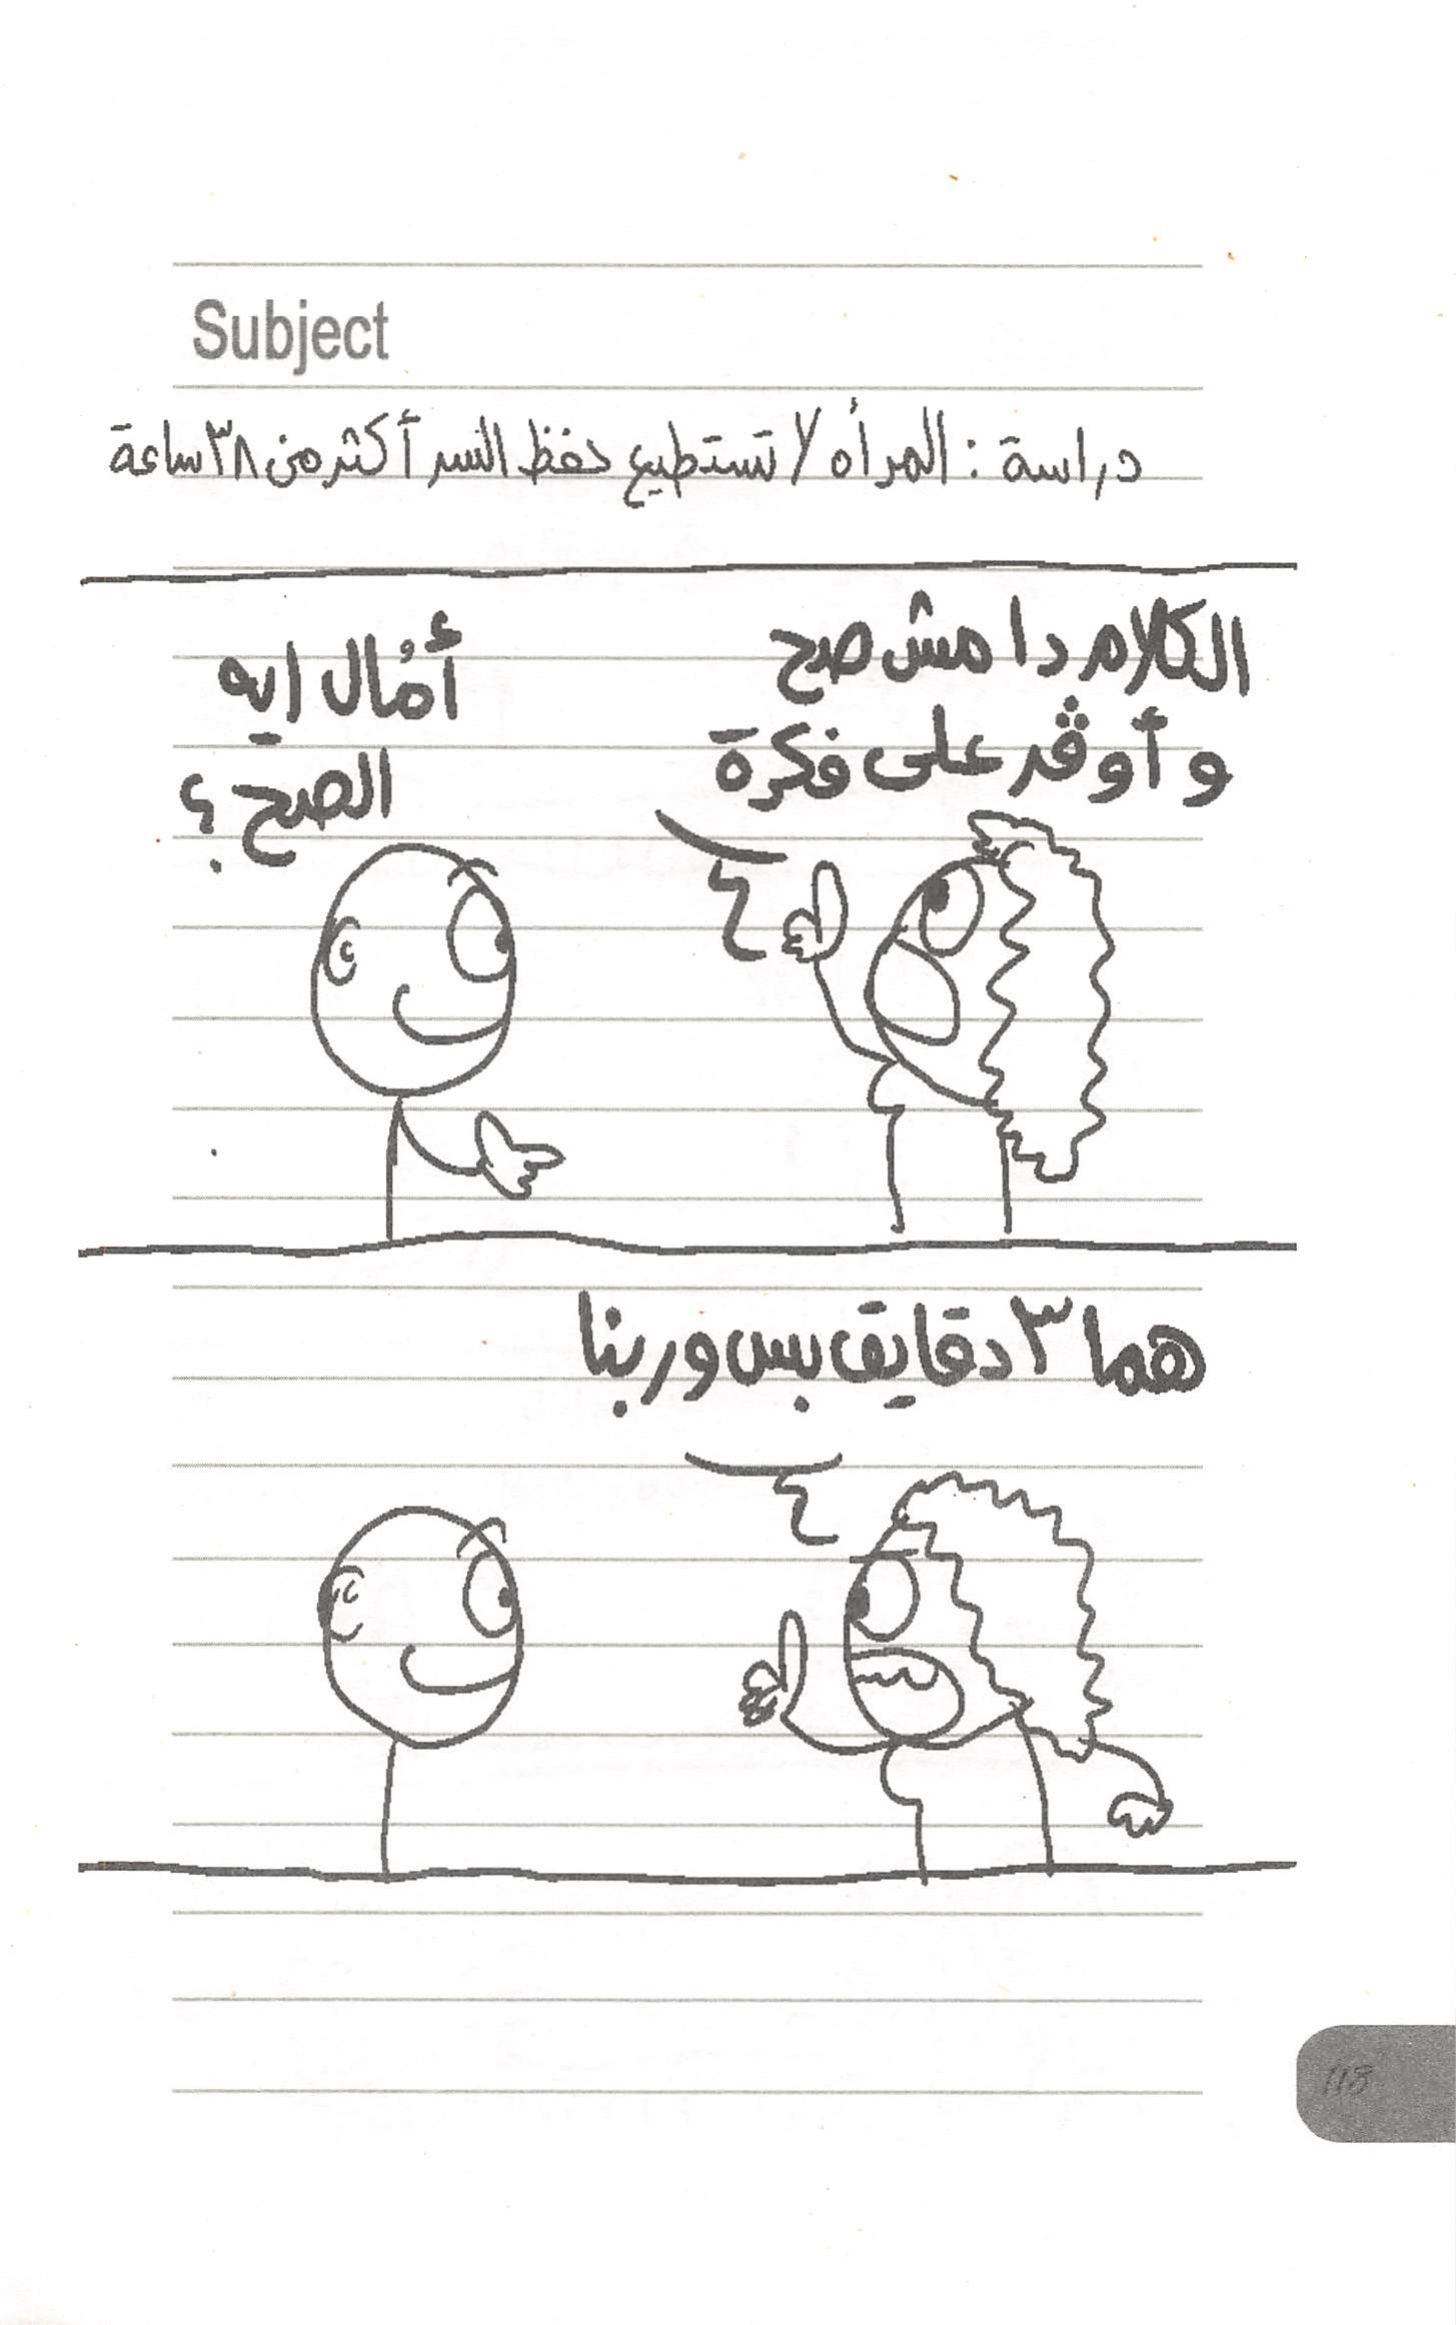 Subject
دراسة : المرأه لا تستطيع حفظ السر أكثر من ٣٨ ساعة
الكلام دا مش صح
و أوڤر على فكرة
أمُال ايه
الصح ؟
هما ٣ دقايق بس وربنا
118